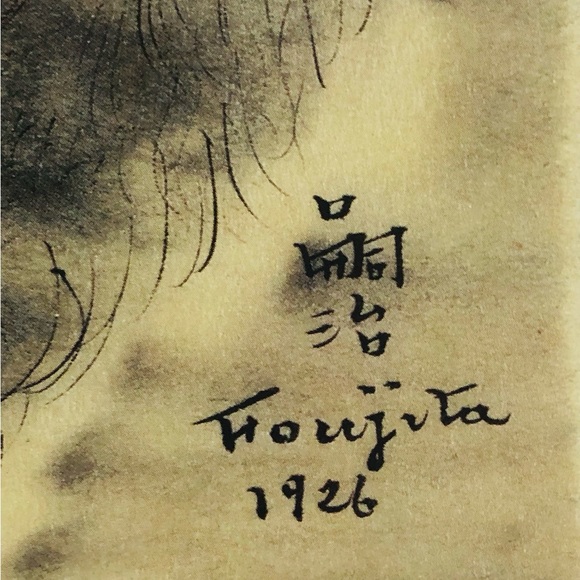 嗣
治
Foujita
1926